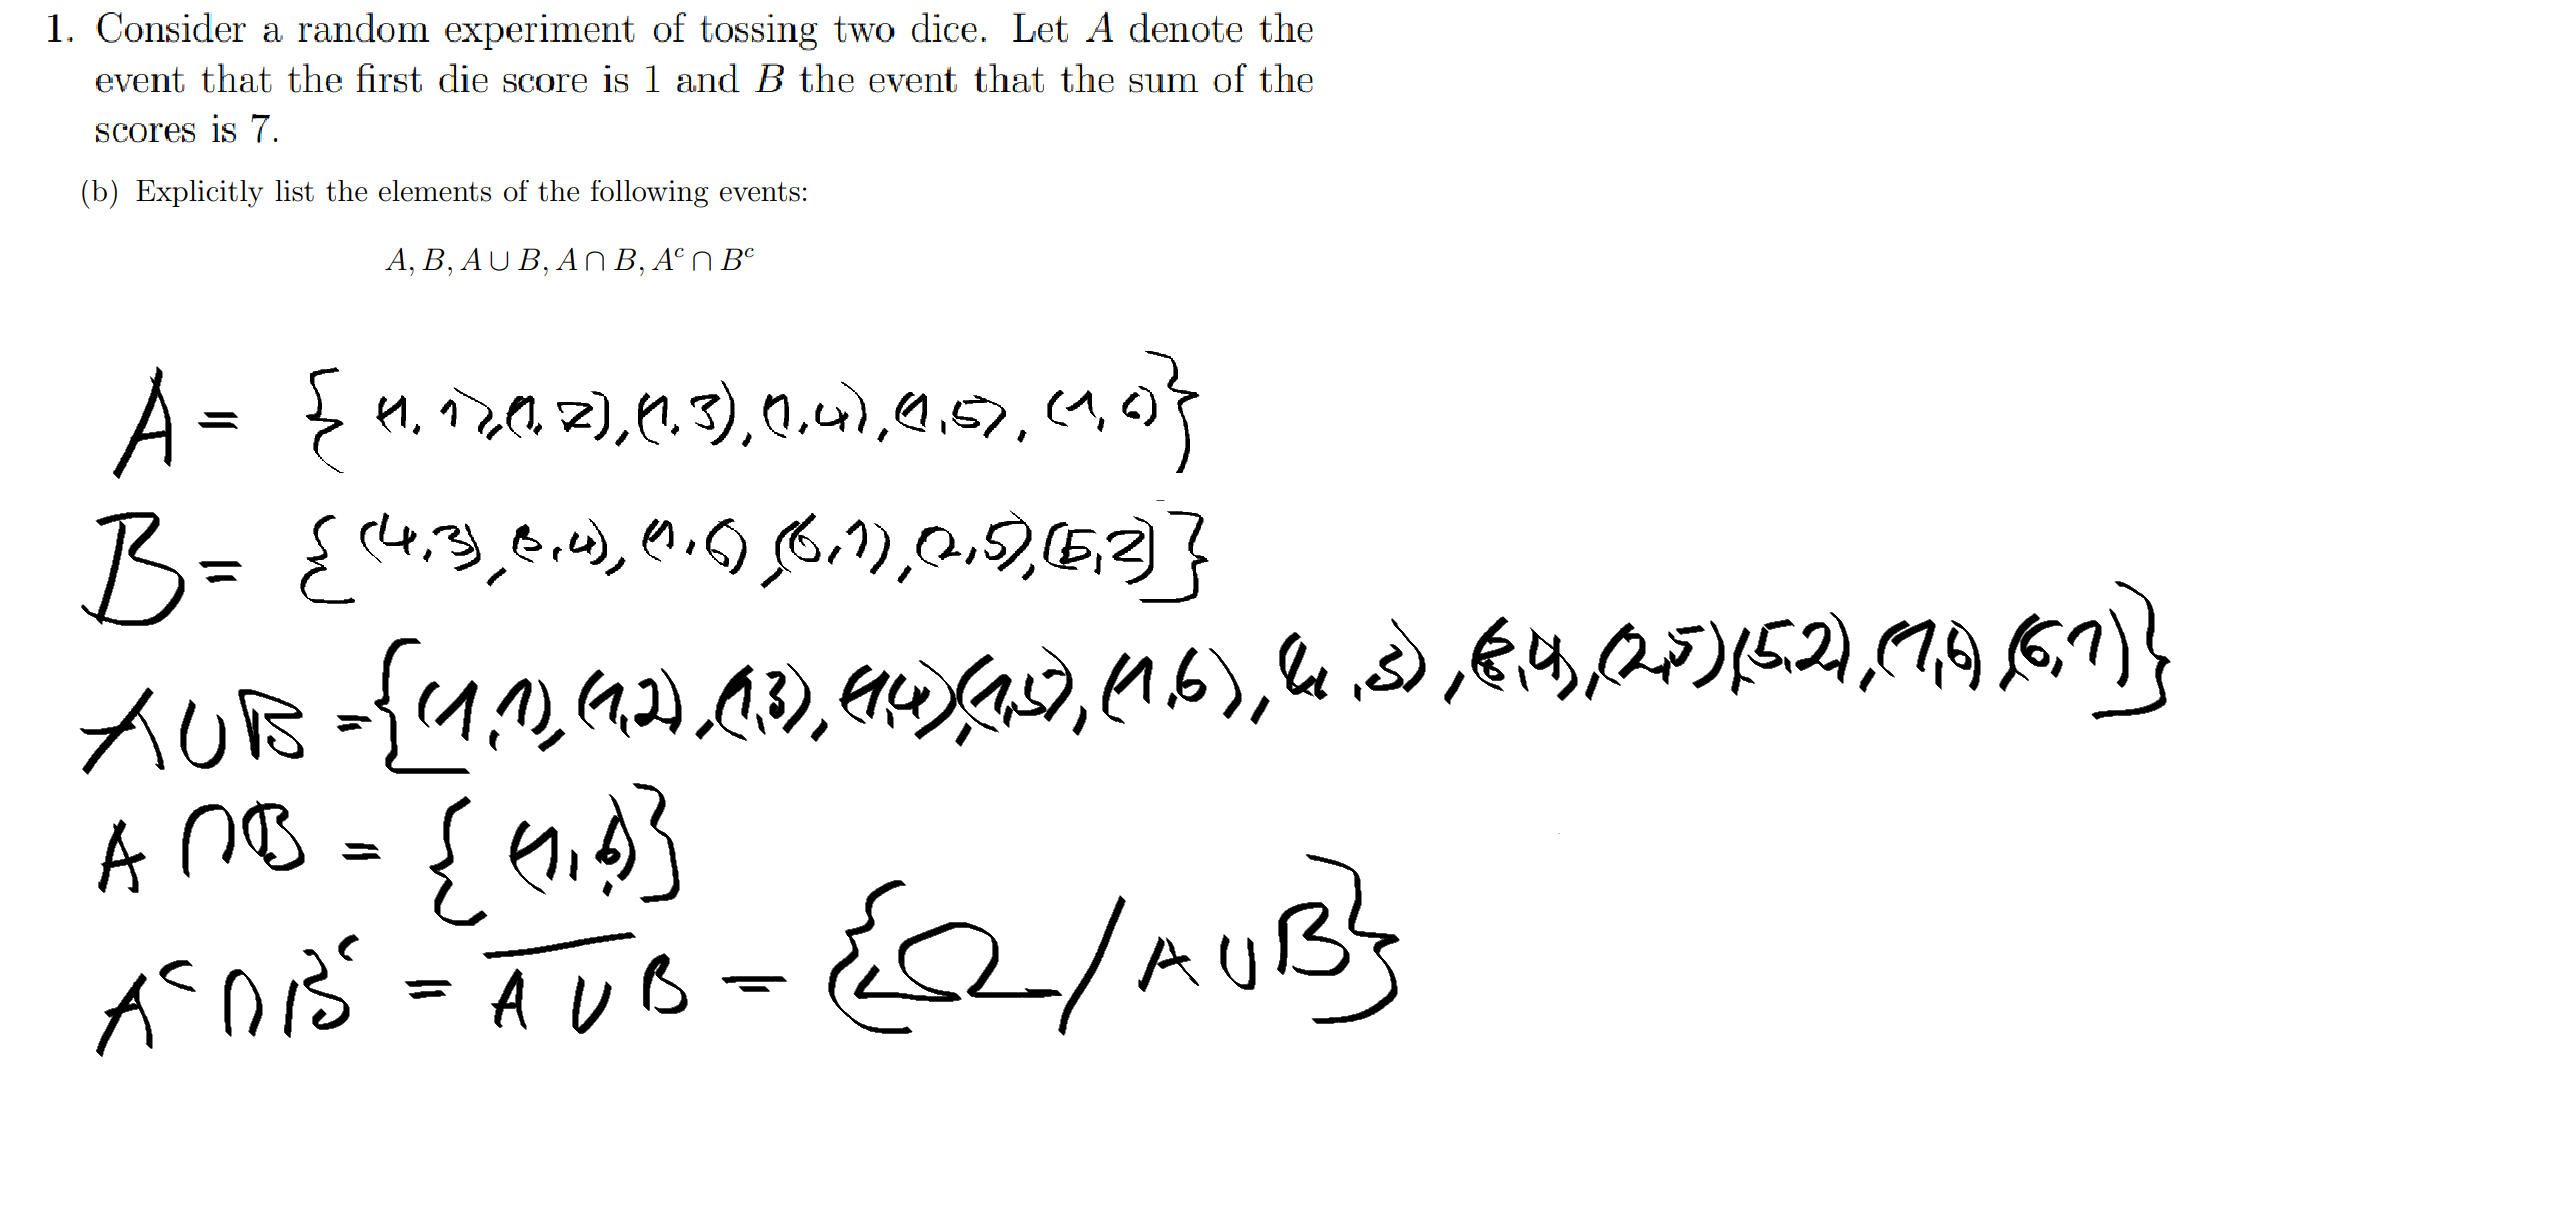 1. Consider a random experiment of tossing two dice. Let A denote the
event that the first die score is 1 and B the event that the sum of the
scores is 7.
(b) Explicitly list the elements of the following events:
A, B, A ∪ B, A ∩ B, Aᶜ ∩ Bᶜ
A = { (1, 1), (1, 2), (1, 3), (1, 4), (1, 5), (1, 6) }
B = { (4, 3), (3, 4), (1, 6), (6, 1), (2, 5), (5, 2) }
A ∪ B = { (1, 1), (1, 2), (1, 3), (1, 4), (1, 5), (1, 6), (4, 3), (3, 4), (2, 5) (5, 2), (1, 6) (6, 1) }
A ∩ B = { (1, 6) }
Aᶜ ∩ Bᶜ = \overline{A ∪ B} = { Ω / A ∪ B }